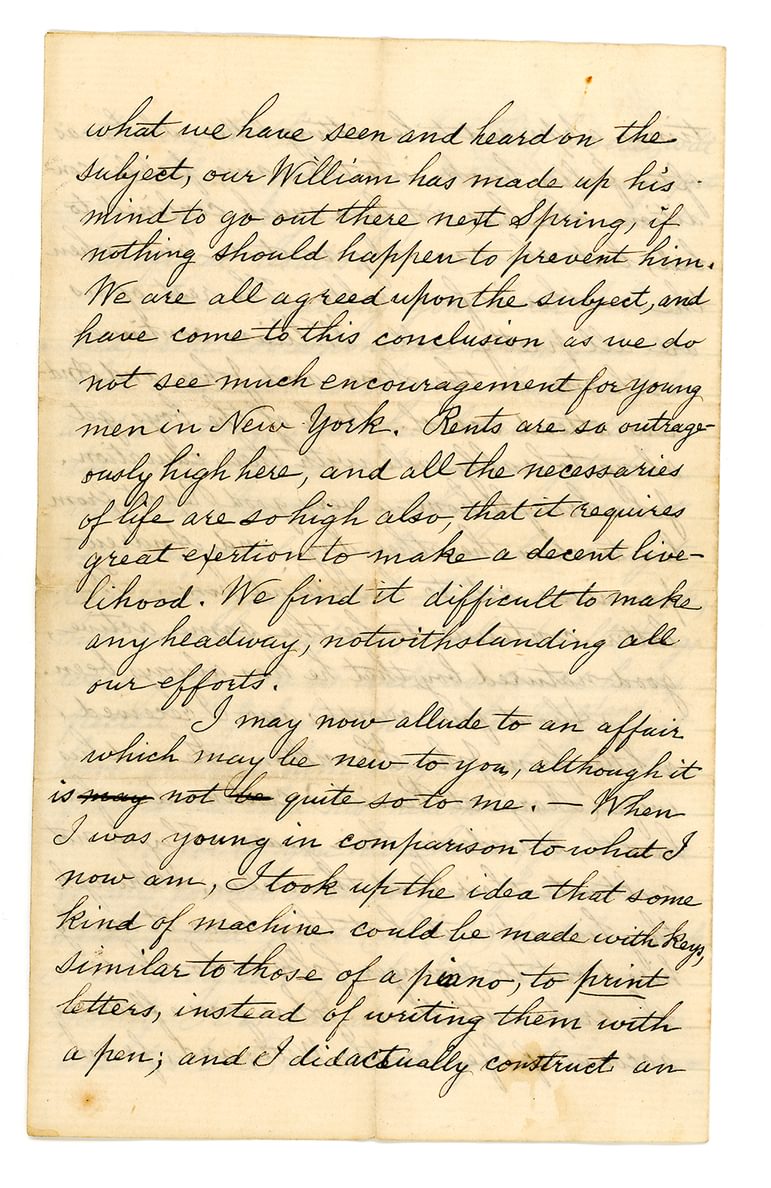 what we have seen and heard on the
subject, our William has made up his
mind to go out there next Spring, if
nothing should happen to prevent him.
We are all agreed upon the subject, and
have come to this conclusion as we do
not see much encouragement for young
men in New York. Rents are so outrage-
ously high here, and all the necessaries
of life are so high also, that it requires
great exertion to make a decent live-
lihood. We find it difficult to make
any headway, notwithstanding all
our efforts.
I may now allude to an affair
which may be new to you, although it
is may not be quite so to me. — When
I was young in comparison to what I
now am, I took up the idea that some
kind of machine could be made with keys,
similar to those of a piano, to print
letters, instead of writing them with
a pen; and I did actually construct an